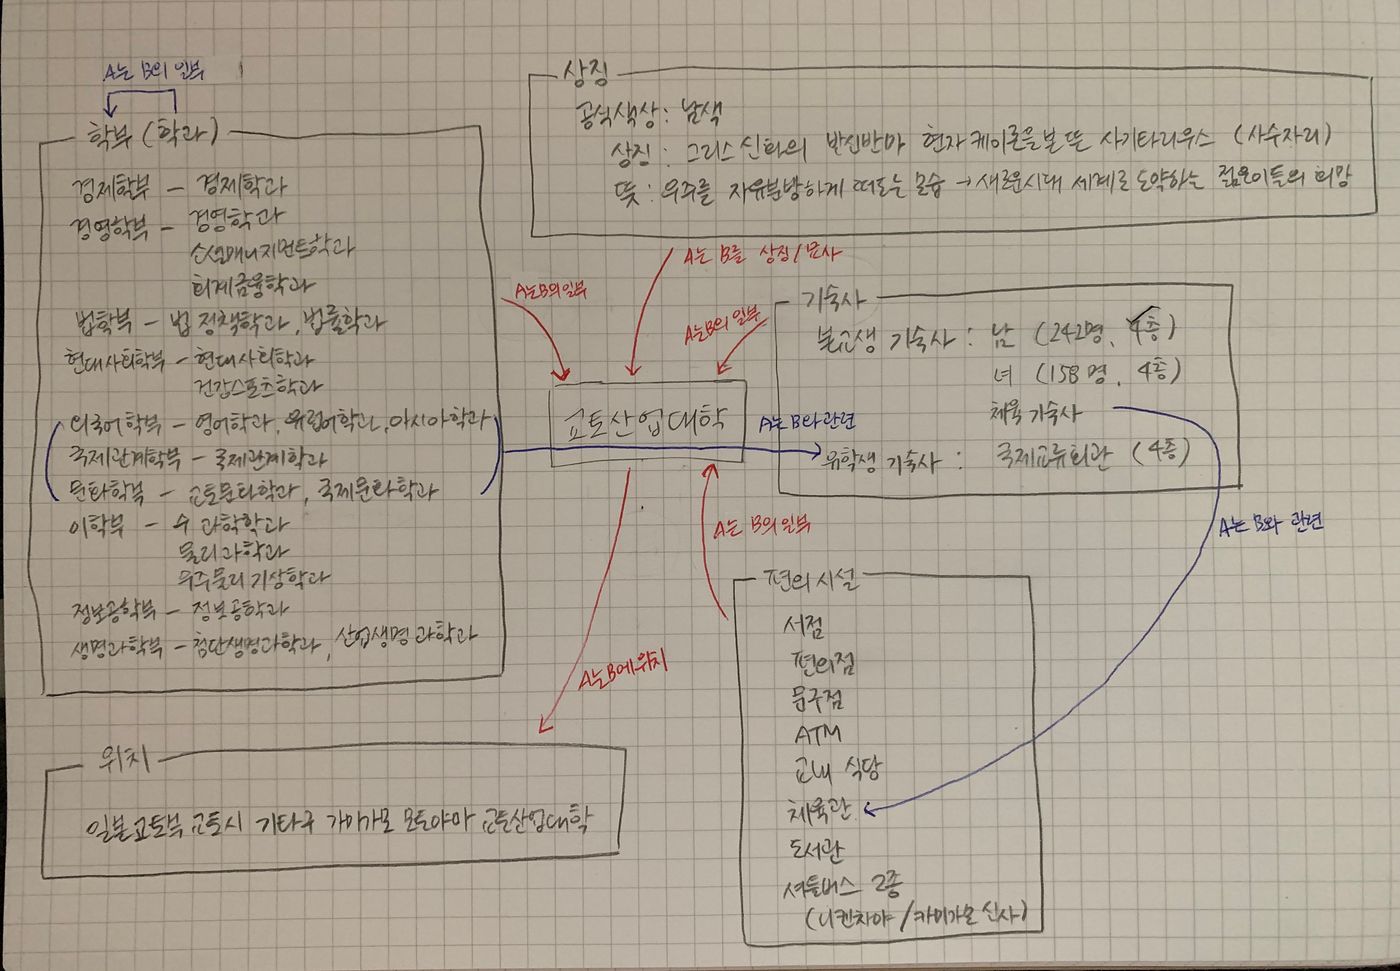 A는 B의 일부
학부 (학과)
경제학부 - 경제학과
경영학부 - 경영학과
소셜매니지먼트학과
회계금융학과
법학부 - 법정책학과, 법률학과
현대사회학부 - 현대사회학과
건강스포츠학과
외국어학부 - 영어학과, 유럽어학과, 아시아학과
국제관계학부 - 국제관계학과
문화학부 - 교토문화학과, 국제문화학과
이학부 - 수 과학학과
물리과학과
우주물리기상학과
정보공학부 - 정보공학과
생명과학부 - 첨단생명과학과, 산업생명과학과
상징
공식색상 : 남색
상징 : 그리스신화의 반신반마 현자케이론을 본뜬 사기타리우스 (사수자리)
뜻 : 우주를 자유분방하게 떠도는 모습 → 새로운시대 세계로 도약하는 젊은이들의 희망
A는 B의 일부
A는 B를 상징/묘사
A는 B의 일부
기숙사
본교생 기숙사 : 남 (242명, 4층)
녀 (158명, 4층)
체육기숙사
유학생 기숙사 : 국제교류회관 (4층)
교토산업대학
A는 B와 관련
A는 B의 일부
A는 B와 관련
A는 B에 위치
편의시설
서점
편의점
문구점
ATM
교내 식당
체육관
도서관
셔틀버스 2종
(니켄차야 / 카미가모 신사)
위치
일본 교토부 교토시 기타구 가미가모 모토야마 교토산업대학